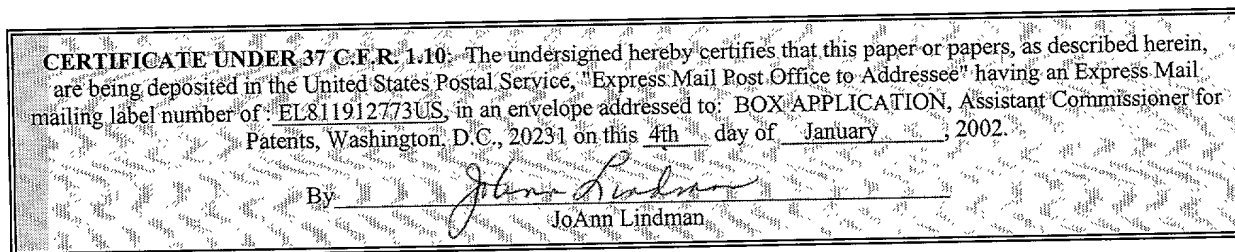 CERTIFICATE UNDER 37 C.F.R. 1.10: The undersigned hereby certifies that this paper or papers, as described herein,
are being deposited in the United States Postal Service, "Express Mail Post Office to Addressee" having an Express Mail
mailing label number of : EL811912773US, in an envelope addressed to: BOX APPLICATION, Assistant Commissioner for
Patents, Washington, D.C., 20231 on this 4th day of January, 2002.
By JoAnn Lindman
JoAnn Lindman